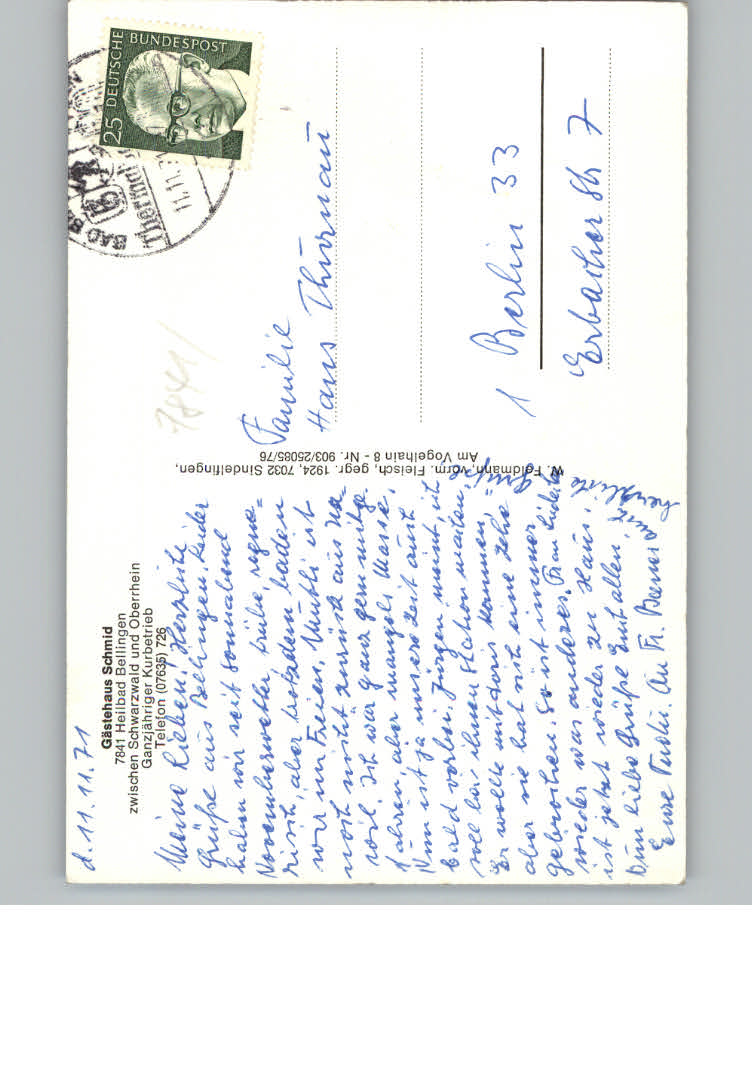 d. 11.11.71
Gästehaus Schmid
7841 Heilbad Bellingen
zwischen Schwarzwald und Oberrhein
Ganzjähriger Kurbetrieb
Telefon (07635) 726
Meine Lieben! Herzliche
Grüße aus Bellingen. Leider
haben wir seit Sonnabend
Novemberwetter, trübe, regne-
risch, aber trotzdem baden
wir im Freien. Mutti ist
noch nicht zurück aus
ich wär ganz gern mitge-
fahren, aber mangels Masse.
Nun ist ja unsere Zeit auch
bald vorbei. Jürgen meint, ich
soll bei ihnen Station machen,
Er wollte mit Doris kommen,
aber sie hat sich eine Zehe
gebrochen. So ist immer
wieder was anderes. Frau
ist jetzt wieder zu Haus.
Nun liebe Grüße Euch allen,
Eure
Auch herzliche Grüße
W. Feldmann, vorm. Fleisch, gegr. 1924, 7032 Sindelfingen,
Am Vogelhain 8 - Nr. 903/25085/76
25 DEUTSCHE BUNDESPOST
BAD
11.11.71
7841
Familie
Hans Thurnau
1 Berlin 33
Erbacher Str 7